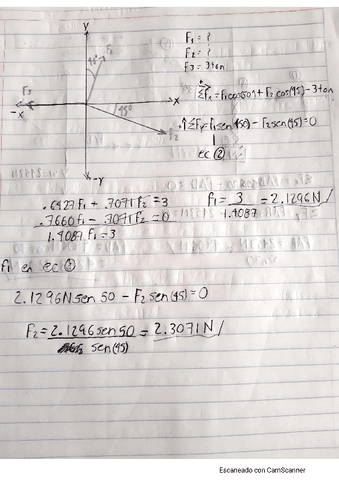 y
F1 = ?
F2 = ?
F3 = 3 ton
40°
F1
F3
-x
x
45°
F2
-y
ΣFx = F1cos(50) + F2 cos(45) - 3 ton
↑ΣFy = F1sen(50) - F2sen(45) = 0
ec ②
.6427F1 + .7071F2 = 3
.7660F1 - .7071F2 = 0
1.4087F1 = 3
F1 = 3/1.4087 = 2.1296N
F1 en ec ②
2.1296N sen 50 - F2 sen(45) = 0
F2 = 2.1296sen50 = 2.3071N
sen(45)
Escaneado con CamScanner